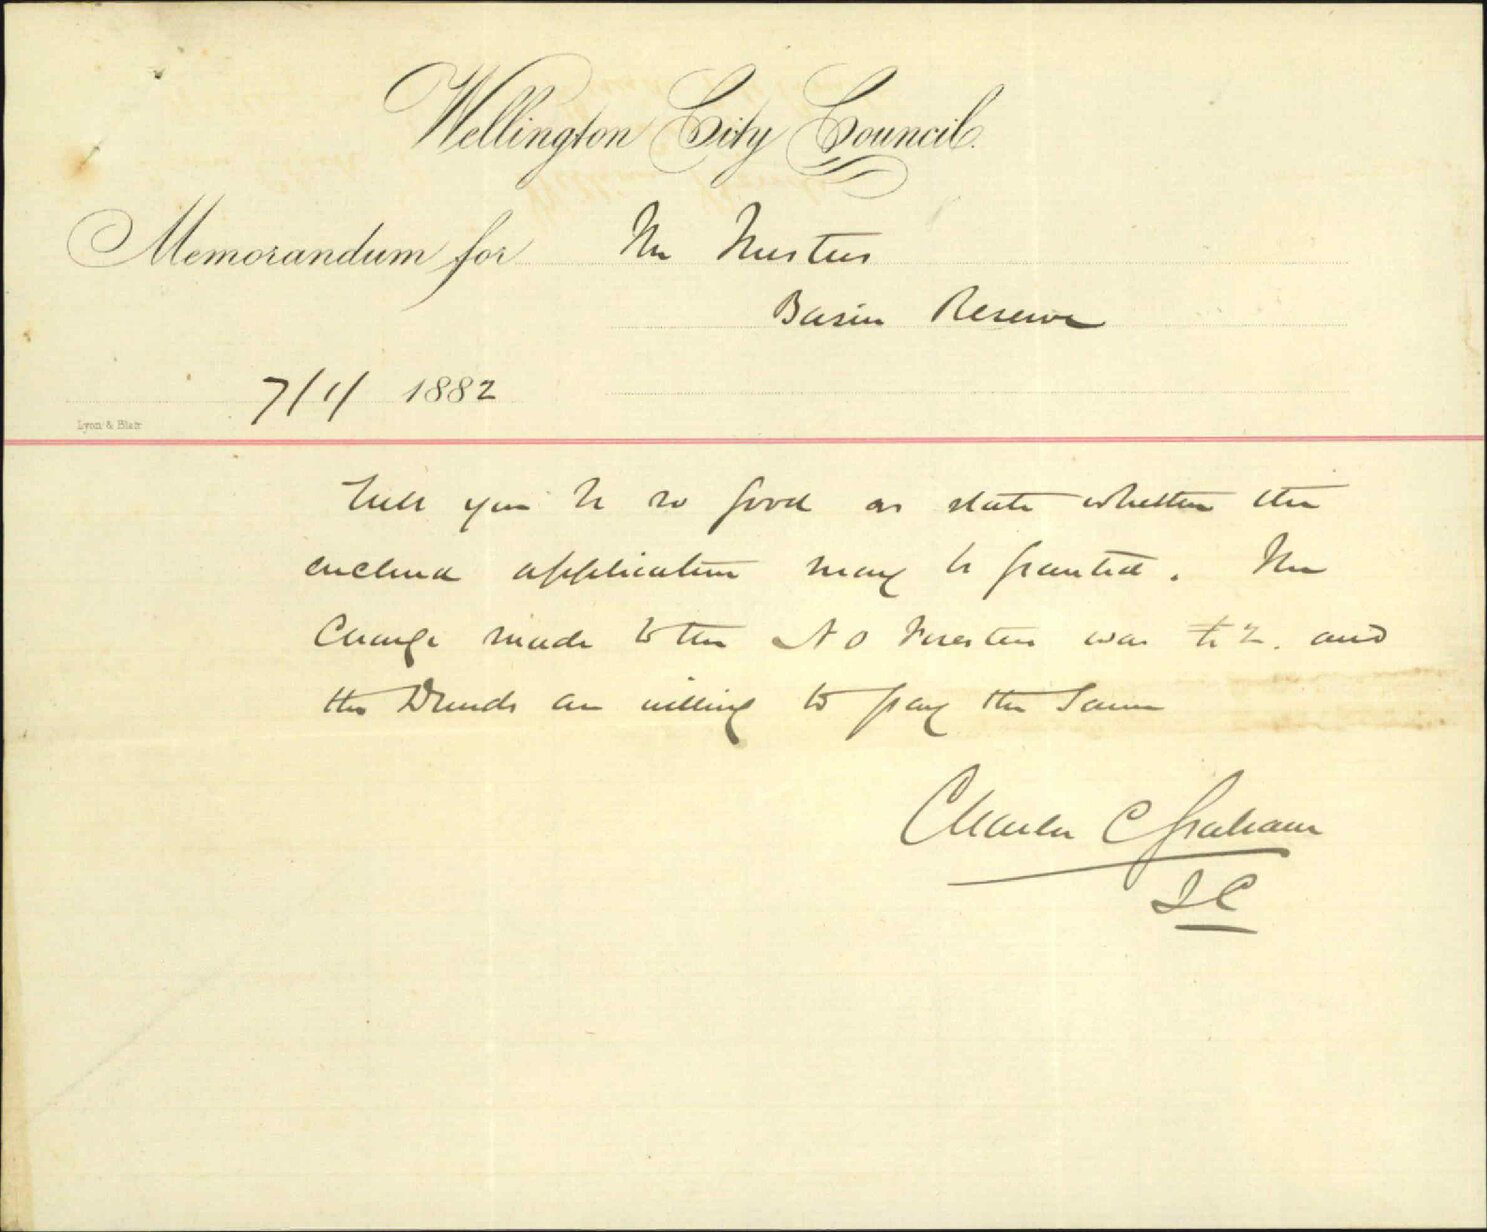 Wellington City Council.
Memorandum for Mr
Basin Reserve
7/1/ 1882
Lyon & Blair
Will you be so good as state whether the
enclosed application may be granted. The
Charge made to the A O Foresters was £2. and
the Druids are willing to pay the Same
Charles C Graham